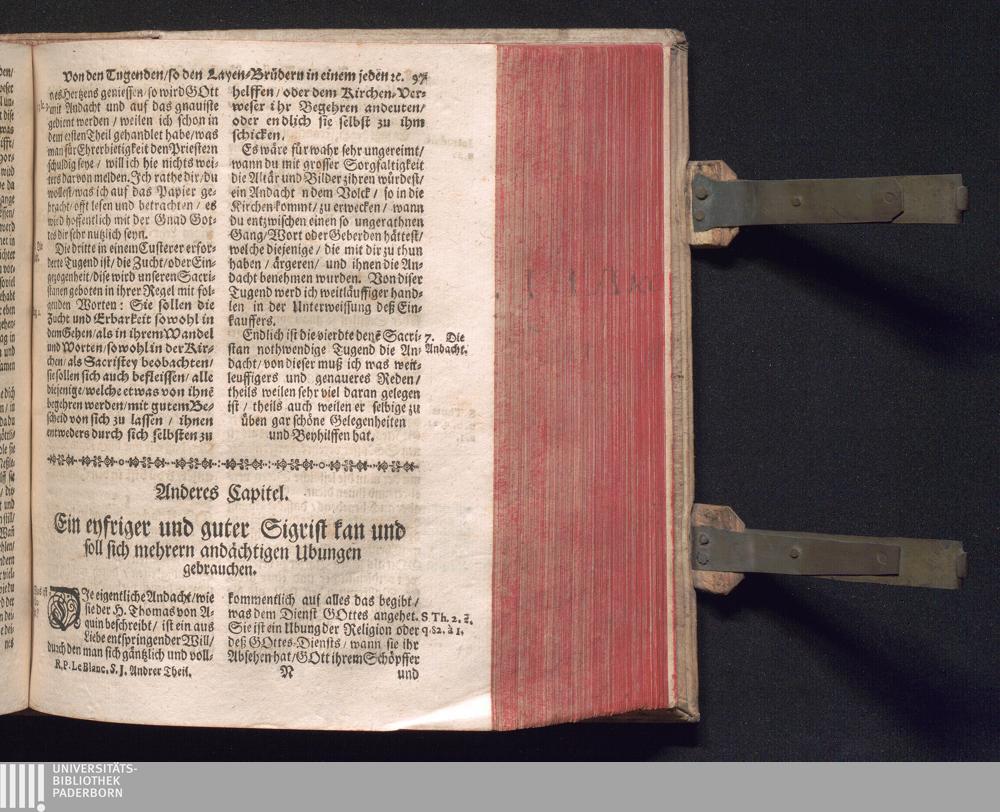 Von den Tugenden/so den Layen-Brüdern in einem jeden ꝛc. 97
nes Hertzens geniessen/so wird GOtt
mit Andacht und auf das gnauiste
gedient werden / weilen ich schon in
dem ersten Theil gehandlet habe/was
man für Ehrerbietigkeit den Priestern
schuldig seye / will ich hie nichts wei-
ters darvon melden. Jch rathe dir/du
wollest/was ich auf das Papier ge-
bracht/offt lesen und betrachten / es
wird hoffentlich mit der Gnad Got-
tes dir sehr nützlich seyn.
Die dritte in einem Custerer erfor-
derte Tugend ist/ die Zucht/oder Ein-
gezogenheit/dise wird unseren Sacri-
stanen geboten in ihrer Regel mit fol-
genden Worten: Sie sollen die
Zucht und Erbarkeit sowohl in
dem Gehen/als in ihrem Wandel
und Worten/sowohl in der Kir-
chen/als Sacristey beobachten/
sie sollen sich auch befleissen/ alle
diejenige/welche etwas von ihnē
begehren werden/mit gutem Be-
scheid von sich zu lassen / ihnen
entweders durch sich selbsten zu
helffen/oder dem Kirchen-Ver-
weser ihr Begehren andeuten/
oder endlich sie selbst zu ihm
schicken.
Es wäre fürwahr sehr ungereimt/
wann du mit grosser Sorgfaltigkeit
die Altär und Bilder zihren würdest/
ein Andacht n dem Volck / so in die
Kirchen kommt/zu erwecken / wann
du entzwischen einen so ungerathnen
Gang/Wort oder Geberden hättest/
welche diejenige / die mit dir zu thun
haben / ärgeren/ und ihnen die An-
dacht benehmen wurden. Von diser
Tugend werd ich weitläuffiger hand-
len in der Unterweissung deß Ein-
kauffers.
Endlich ist die vierdte denē Sacri-
stan nothwendige Tugend die An-
dacht/von dieser muß ich was weit-
leuffigers und genaueres Reden/
theils weilen sehr viel daran gelegen
ist / theils auch weilen er selbige zu
üben gar schöne Gelegenheiten
und Beyhilffen hat.
7. Die
Andacht.
Anderes Capitel.
Ein eyfriger und guter Sigrist kan und
soll sich mehrern andächtigen Ubungen
gebrauchen.
DJe eigentliche Andacht/wie
sie der H. Thomas von A-
quin beschreibt/ ist ein aus
Liebe entspringender Will/
durch den man sich gäntzlich und voll-
kommentlich auf alles das begibt/
was dem Dienst GOttes angehet.
Sie ist ein Ubung der Religion oder
deß GOttes-Diensts / wann sie ihr
Absehen hat/GOtt ihrem Schöpffer
S Th. 2. 2.
q. 82. à 1.
R. P. Le Blanc. S. J. Andrer Theil.
N
und
UNIVERSITÄTS-
BIBLIOTHEK
PADERBORN